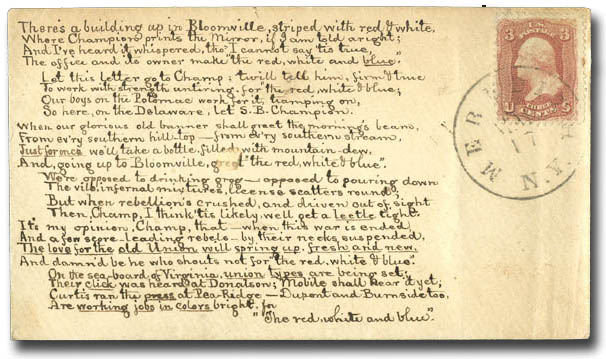 There's a building up in Bloomville, striped with red & white.
Where Champion prints the Mirror, if I am told aright;
And I've heard it whispered, tho' I cannot say 'tis true,
The office and its owner make "the red, white and blue."
Let this letter go to Champ; 'twill tell him, firm & true
To work with strength untiring for "the red, white & blue;
Our boys on the Potomac work for it, tramping on,
So here, on the Delaware, let S.B. Champion.
When our glorious old banner shall greet the morning's beams,
From ev'ry southern hill-top – from ev'ry southern stream,
Just for once we'll take a bottle, filled with mountain-dew,
And, going up to Bloomville, greet "the red, white & blue".
We're opposed to drinking grog – opposed to pouring down
The vile, infernal mixtures, license scatters round;
But when rebellion's crushed, and driven out of sight
Then, Champ, I think 'tis likely we'll get a leetle tight.
It's my opinion, Champ, that – when this war is ended,
And a few score leading rebels – by their necks suspended,
The love for the old Union will spring up, fresh and new,
And damn'd be he who shouts not for "the red, white & blue"
On the sea-board of Virginia, union types are being set;
Their click was heard at Donalson; Mobile shall hear it yet;
Curtis ran the press at Pea-Ridge – Dupont and Burnside too,
Are working jobs in colors bright, for
"The red, white and blue".
3 3
U.S. POSTAGE
U THREE CENTS S
N.Y.
17